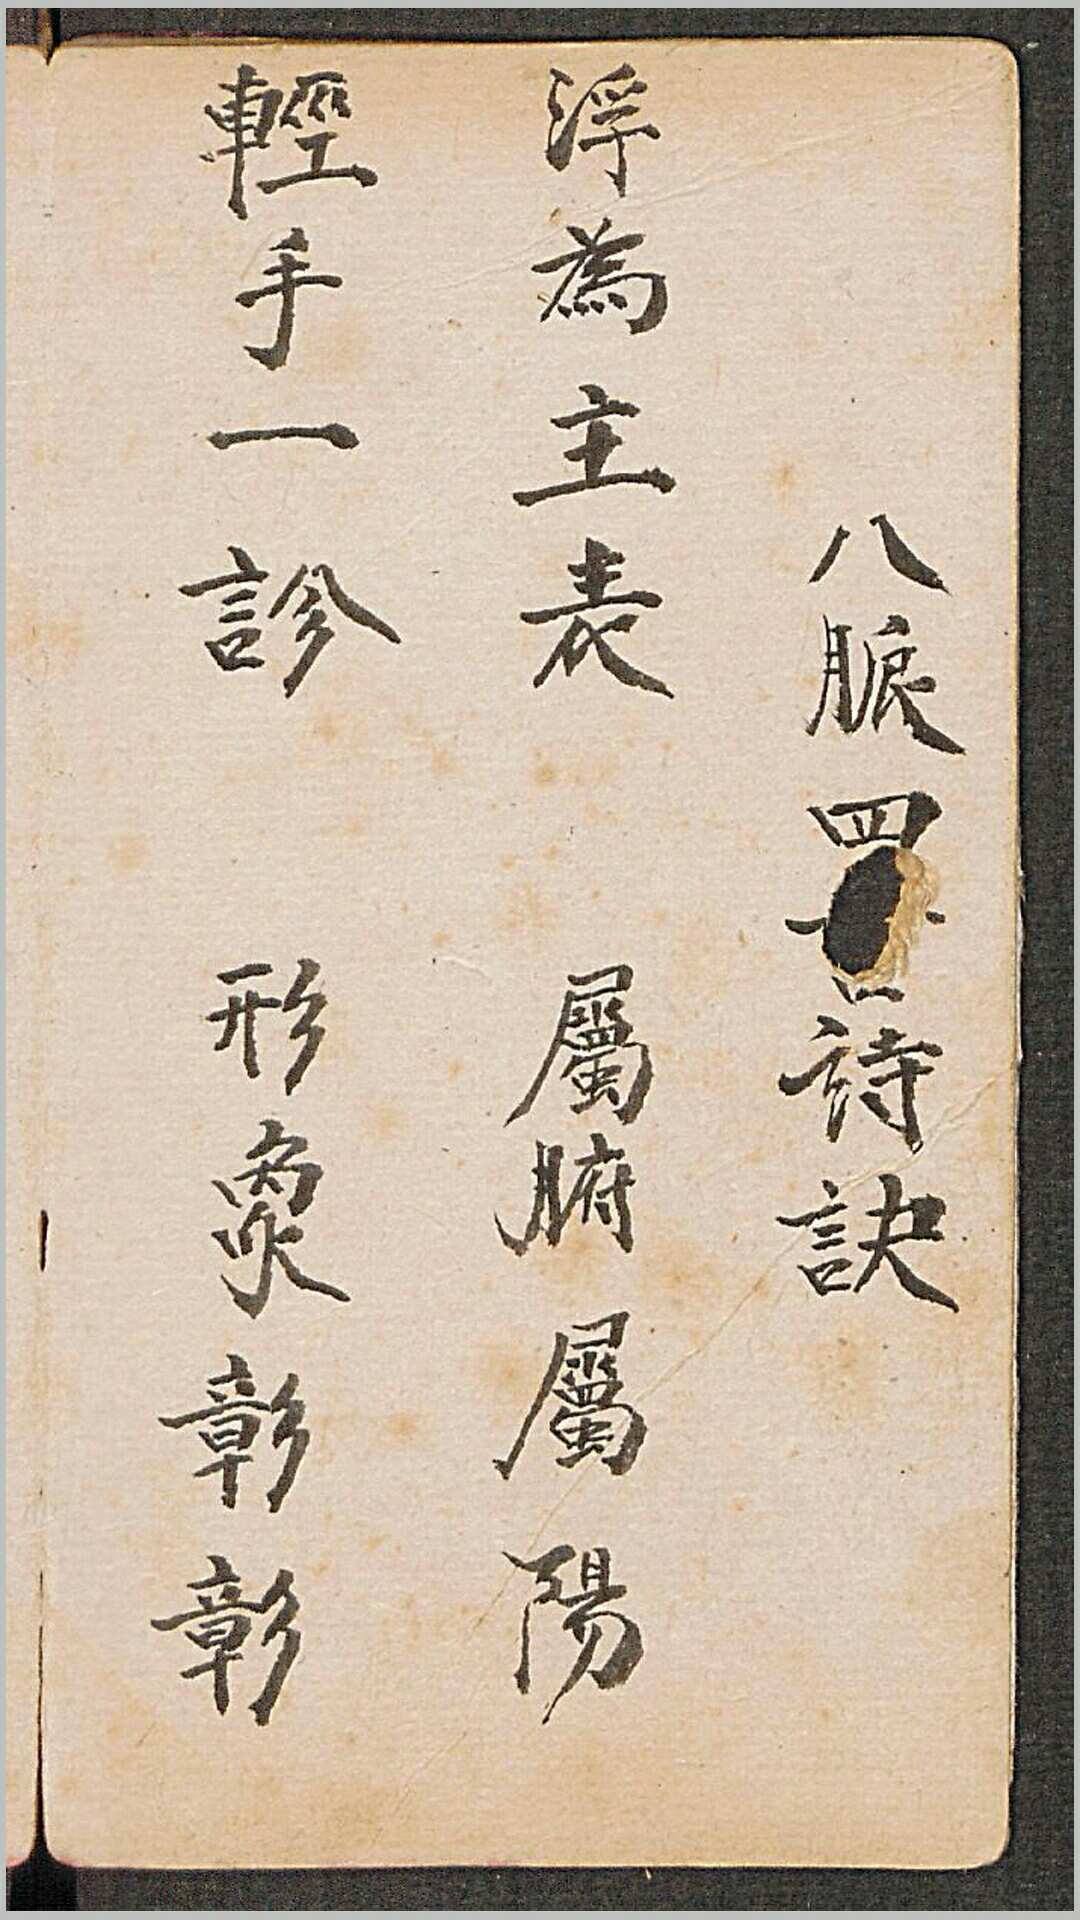 八脈四言詩訣
浮為主表 屬腑屬陽
輕手一診 形象彰彰